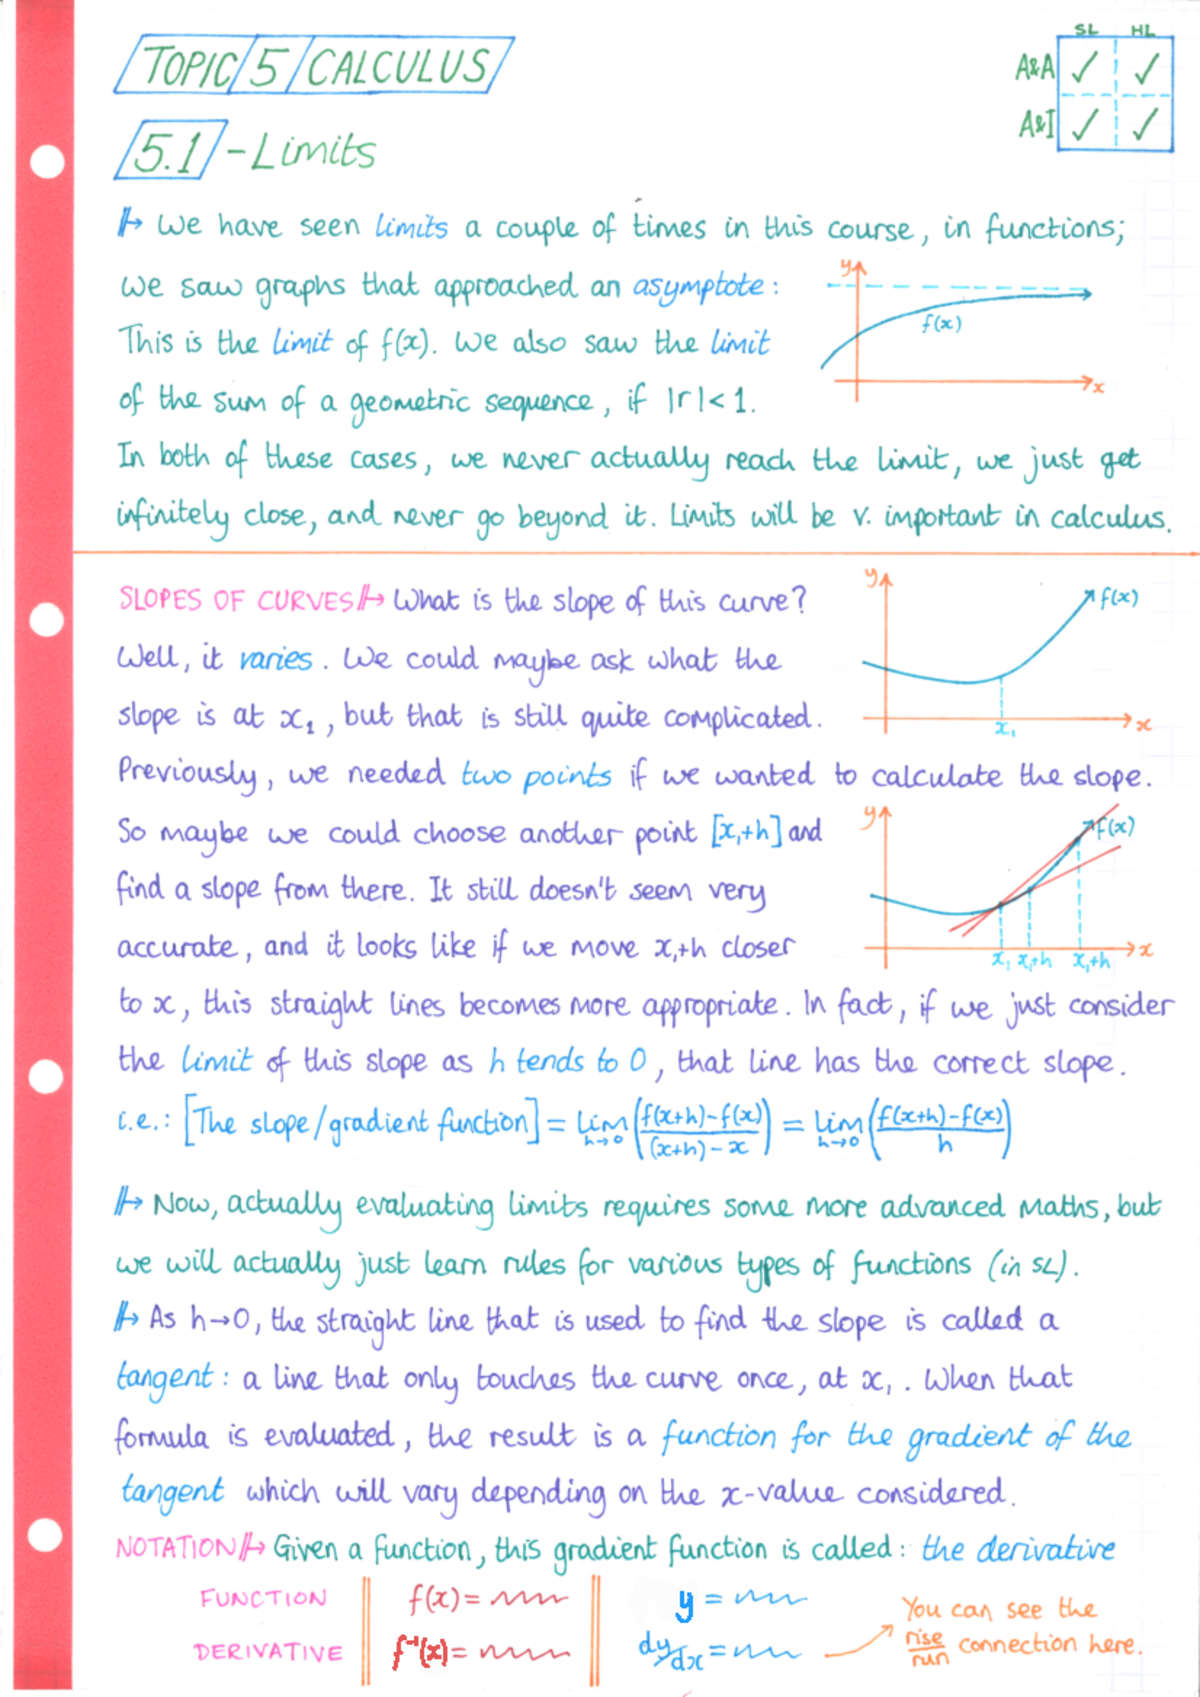 TOPIC 5 CALCULUS
SL HL
A&A ✓ ✓
A&I ✓ ✓
5.1 - Limits
↦ We have seen limits a couple of times in this course, in functions;
we saw graphs that approached an asymptote:
This is the limit of f(x). We also saw the limit
of the sum of a geometric sequence, if |r|<1.
y
f(x)
x
In both of these cases, we never actually reach the limit, we just get
infinitely close, and never go beyond it. Limits will be v. important in calculus.
SLOPES OF CURVES ↦ What is the slope of this curve?
Well, it varies. We could maybe ask what the
slope is at x₁, but that is still quite complicated.
y
f(x)
x₁
x
Previously, we needed two points if we wanted to calculate the slope.
So maybe we could choose another point [x₁+h] and
find a slope from there. It still doesn't seem very
accurate, and it looks like if we move x₁+h closer
y
f(x)
x₁ x₁+h x₁+h
x
to x, this straight lines becomes more appropriate. In fact, if we just consider
the limit of this slope as h tends to 0, that line has the correct slope.
i.e.: [The slope/gradient function] = lim h→0 (f(x+h)-f(x) / (x+h)-x) = lim h→0 (f(x+h)-f(x) / h)
↦ Now, actually evaluating limits requires some more advanced maths, but
we will actually just learn rules for various types of functions (in SL).
↦ As h→0, the straight line that is used to find the slope is called a
tangent: a line that only touches the curve once, at x₁. When that
formula is evaluated, the result is a function for the gradient of the
tangent which will vary depending on the x-value considered.
NOTATION ↦ Given a function, this gradient function is called: the derivative
FUNCTION f(x)= y =
DERIVATIVE f⁻¹(x)= dy/dx =
You can see the
rise/run connection here.